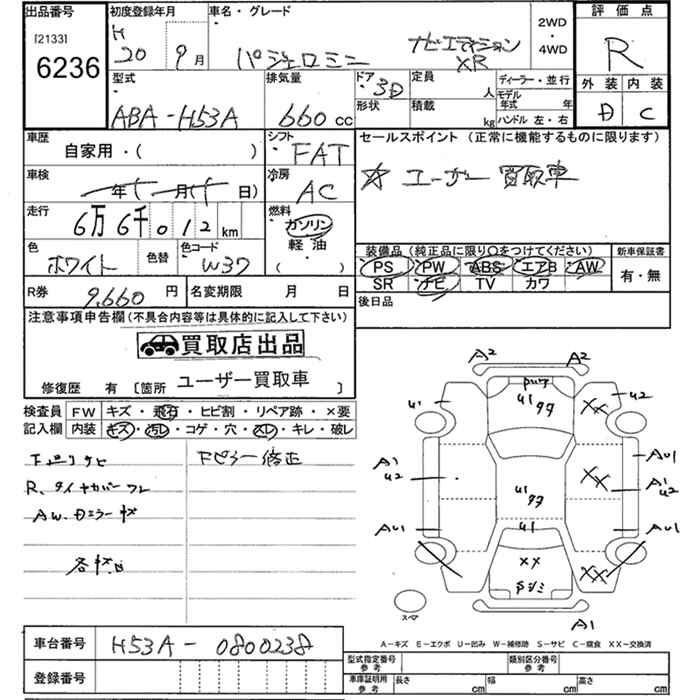 出品番号 初度登録年月 車名・グレード 2WD・4WD 評価点
[2133]
6236
H 20 9月 パジェロミニ ナビエディション XR R
型式 排気量 ドア 定員 人 ディーラー・並行 外装 内装
ABA-H53A 660cc 3D 形状 積載 kg モデル年式 年 ハンドル 左・右 D C
車歴 シフト セールスポイント (正常に機能するものに限ります)
自家用・( ) FAT
☆ ユーザー 買取車
車検 年 月( 日) 冷房 AC
走行 6万6千012km 燃料 ガソリン 軽油 ( )
装備品(純正品に限り○をつけてください) 新車保証書
色 ホワイト 色替 色コード W37
PS PW ABS エアB AW 有・無
SR ナビ TV カワ
R券 9,660円 名変期限 月 日 後日品
注意事項申告欄(不具合内容等は具体的に記入して下さい)
買取店出品
修復歴 有 [箇所 ユーザー買取車 ]
検査員 FW キズ・飛石・ヒビ割・リペア跡・×要
記入欄 内装 キズ・汚レ・コゲ・穴・スレ・キレ・破レ
下廻りサビ Fピラー修正
R、タイヤカバーワレ
AW、Dミラーキズ
各キズ凹
A2 A2
U1 U2
U1 XX
A1 U2 XX AU1
A1 U2
U1
AU1 U1 AU1
XX XX
スペア A1
A-キズ E-エクボ U-凹み W-補修跡 S-サビ C-腐食 XX-交換済
車台番号 H53A-0800238
登録番号
型式指定番号 参考 類別区分番号 参考
車庫証明用 参考 長さ cm 幅 cm 高さ cm